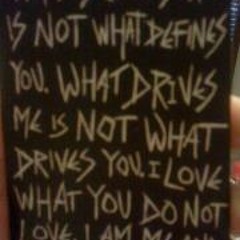 IS NOT WHAT DEFINES
YOU. WHAT DRIVES
ME IS NOT WHAT
DRIVES YOU. I LOVE
WHAT YOU DO NOT
LOVE. I AM ME